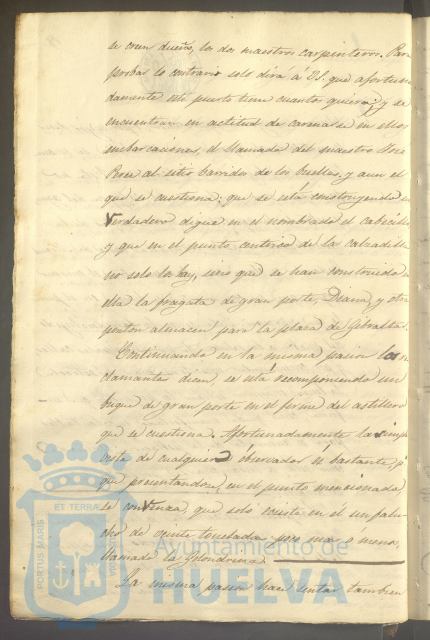 se crean dueños, los dos maestros carpinteros. Para
probar lo contrario solo dirá á V.S. que afortuna
damente este puerto tiene cuantos quiera, y se
encuentran en actitud de carenarse en ellos
embarcaciones, el llamado del maestro José
al sitio de los y aun el
que se cuestiona: que se está construyendo un
verdadero dique en el nombrado el Cabecillo
y que en el punto centrico de la calzadilla
no solo lo hay, sino que se han construido en
ella la fragata de gran porte, Diana, y otro
ponton almacen para la plaza de Gibraltar.
Continuando en la misma pasion los re
clamantes dicen, se está recomponiendo un
buque de gran porte en el firme del astillero
que se cuestiona. Afortunadamente la simple
vista de cualquiera observador es bastante, p.ª
que presentandose en el punto mencionado,
se convenza, que solo existe en él un falu
cho de veinte toneladas poco mas o menos,
llamado la Golondrina.
La misma pasion hace sentar tambien
PORTUS MARIS ET TERRAE
Ayuntamiento de
HUELVA